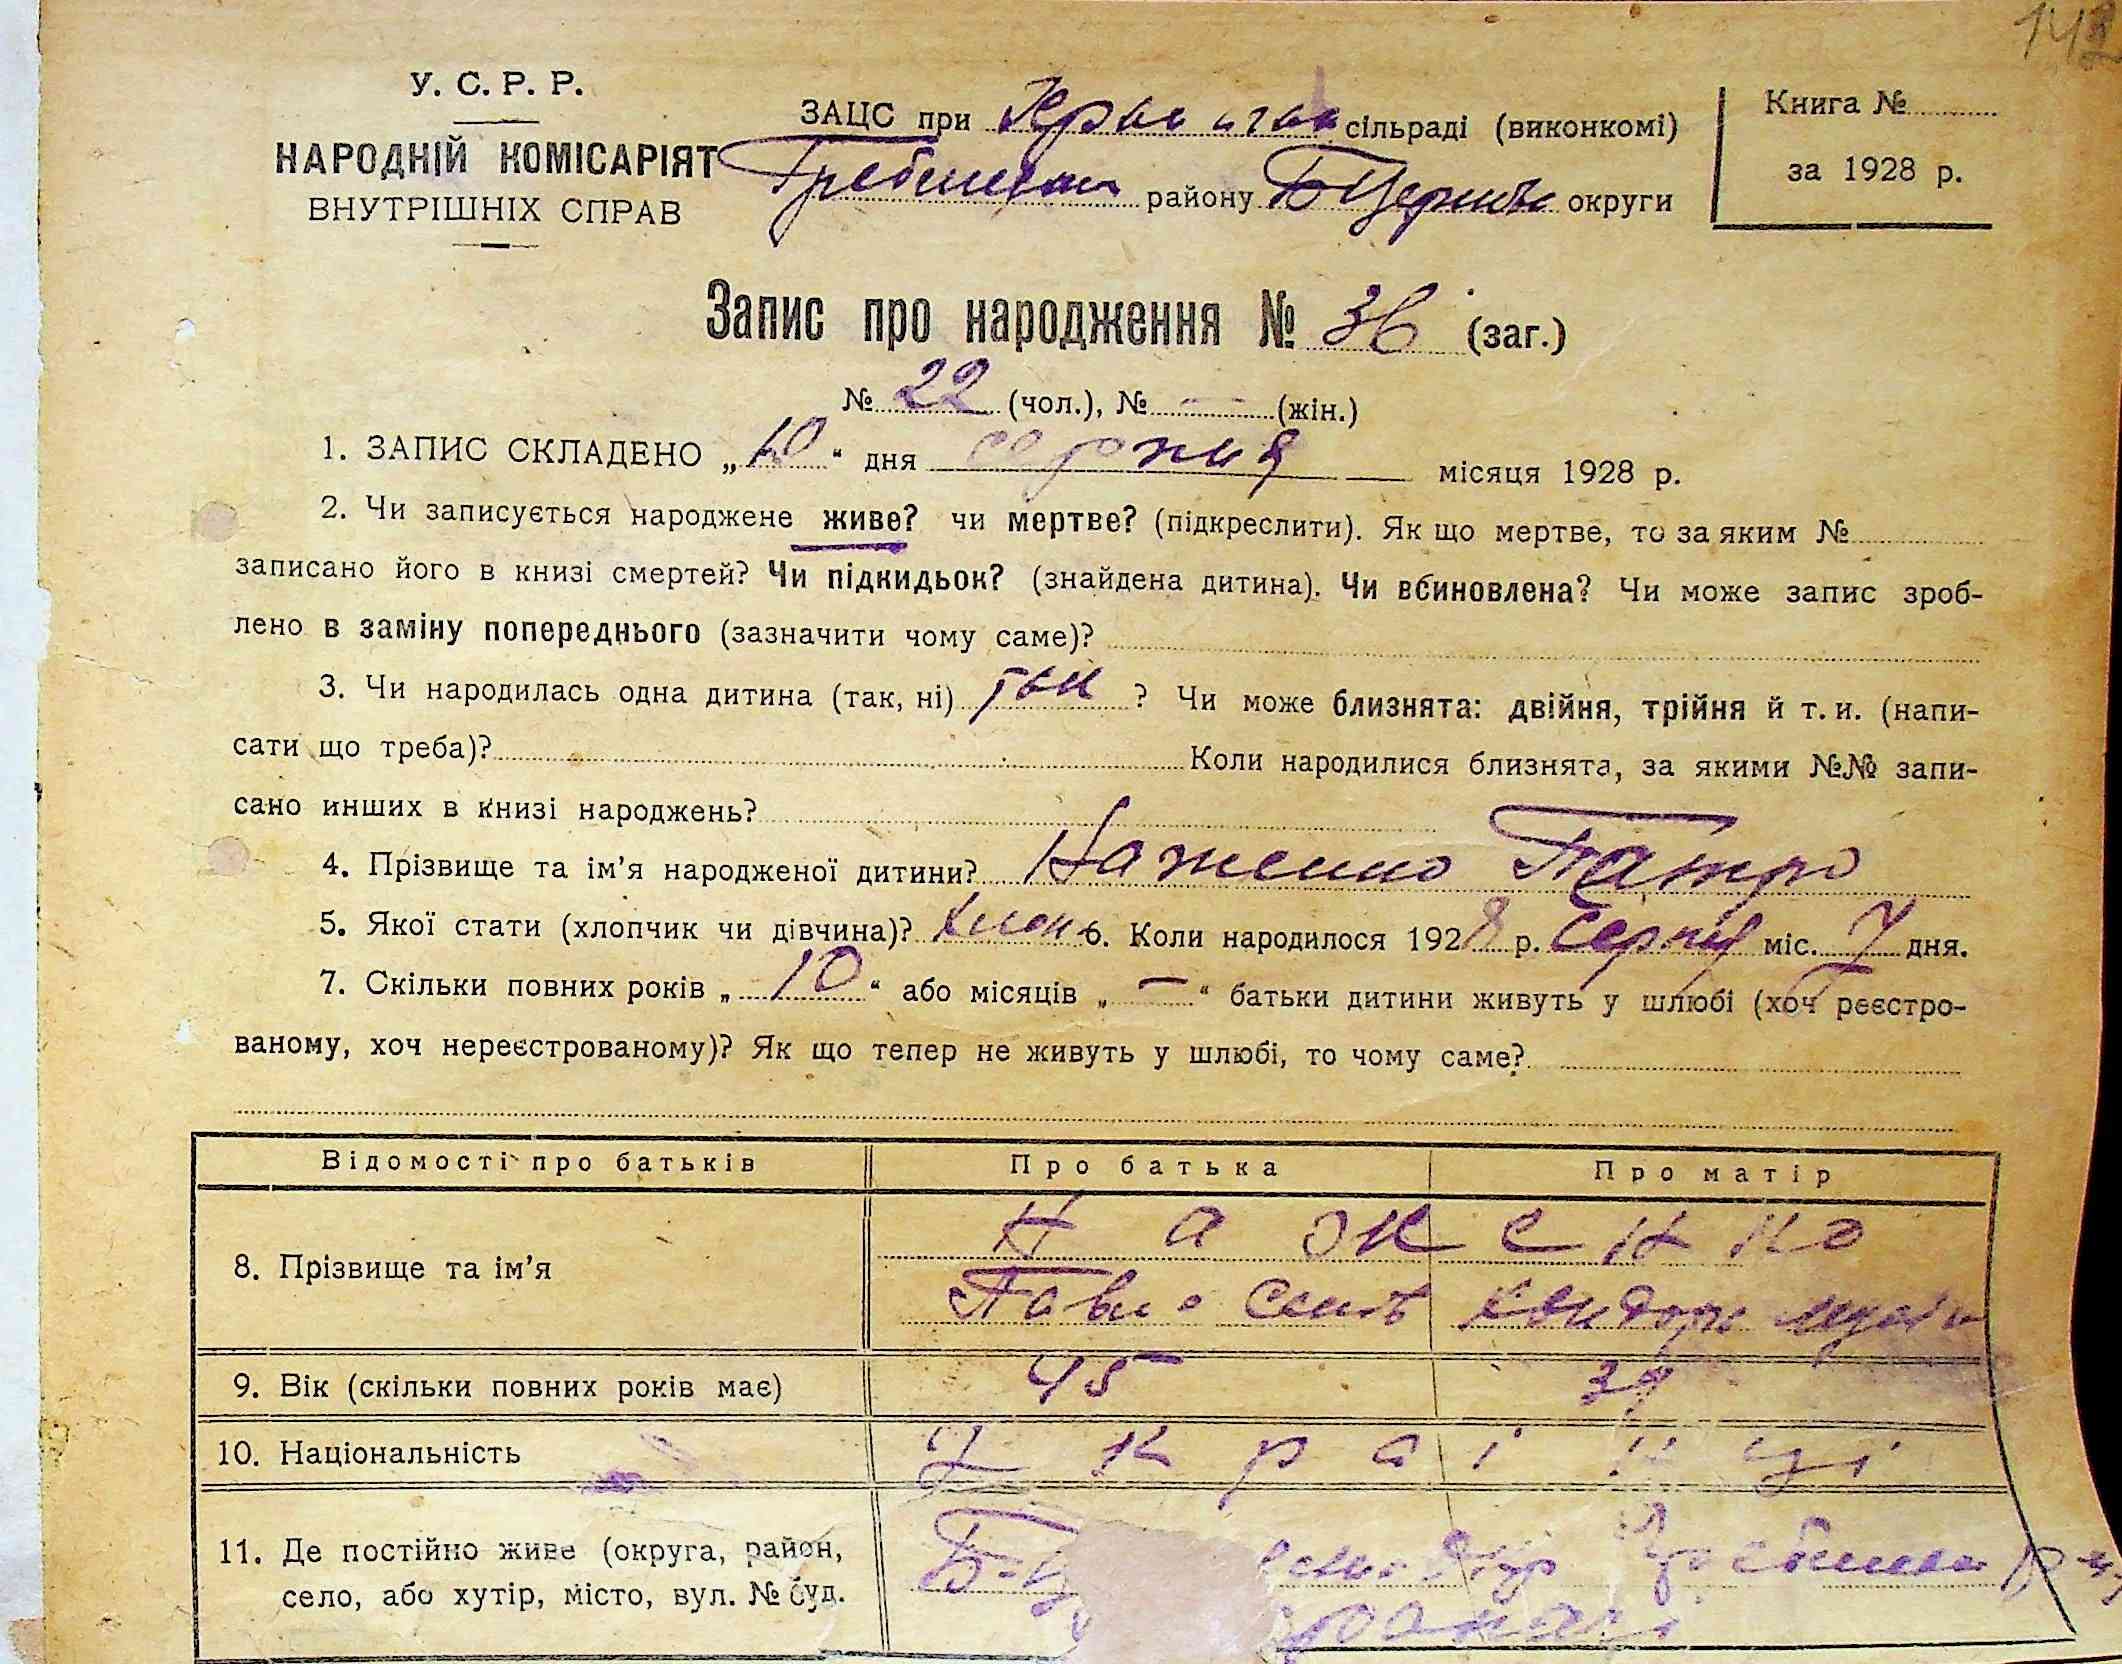 У. С. Р. Р.
НАРОДНІЙ КОМІСАРІЯТ
ВНУТРІШНІХ СПРАВ
ЗАЦС при сільраді (виконкомі)
району Б Церківс округи
Книга №
за 1928 р.
Запис про народження № 36 (заг.)
№ 22 (чол.), № — (жін.)
1. ЗАПИС СКЛАДЕНО „10“ дня серпня місяця 1928 р.
2. Чи записується народжене живе? чи мертве? (підкреслити). Як що мертве, то за яким №
записано його в книзі смертей? Чи підкидьок? (знайдена дитина). Чи всиновлена? Чи може запис зроб-
лено в заміну попереднього (зазначити чому саме)?
3. Чи народилась одна дитина (так, ні) так ? Чи може близнята: двійня, трійня й т. и. (напи-
сати що треба)? Коли народилися близнята, за якими №№ запи-
сано инших в книзі народжень?
4. Прізвище та ім’я народженої дитини? Каженко Патро
5. Якої стати (хлопчик чи дівчина)? хлоп 6. Коли народилося 1928 р. Серпня міс. 7 дня.
7. Скільки повних років „10“ або місяців „—“ батьки дитини живуть у шлюбі (хоч реєстро-
ваному, хоч нереєстрованому)? Як що тепер не живуть у шлюбі, то чому саме?
Відомості про батьків Про батька Про матір
8. Прізвище та ім’я Каженко
Павло
9. Вік (скільки повних років має) 45 39
10. Національність Українці
11. Де постійно живе (округа, район,
село, або хутір, місто, вул. № буд.